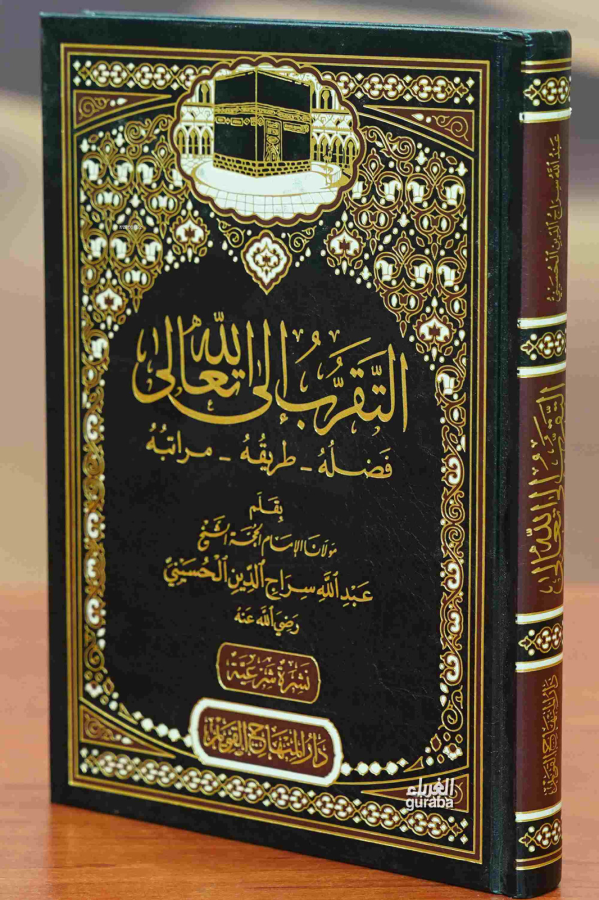 التَّقَرُّبُ إِلَى اللَّهِ تَعَالَى
فَضْلُهُ - طَرِيقُهُ - مَرَاتِبُهُ
بِقَلَم
مَوْلَانَا الإِمَامِ الحُجَّةِ الشَّيْخِ
عَبْدِ اللَّهِ سِرَاجِ الدِّينِ الْحُسَيْنِيِّ
رَضِيَ اللَّهُ عَنْهُ
نَشْرَة شَرْعِيَّة
دَارُ المِنْهَاجِ القَوِيمِ
الغرباء
guraba
عَبْدُ اللَّهِ سِرَاجُ الدِّينِ الْحُسَيْنِيُّ
التَّقَرُّبُ إِلَى اللَّهِ تَعَالَى
دَارُ المِنْهَاجِ القَوِيمِ